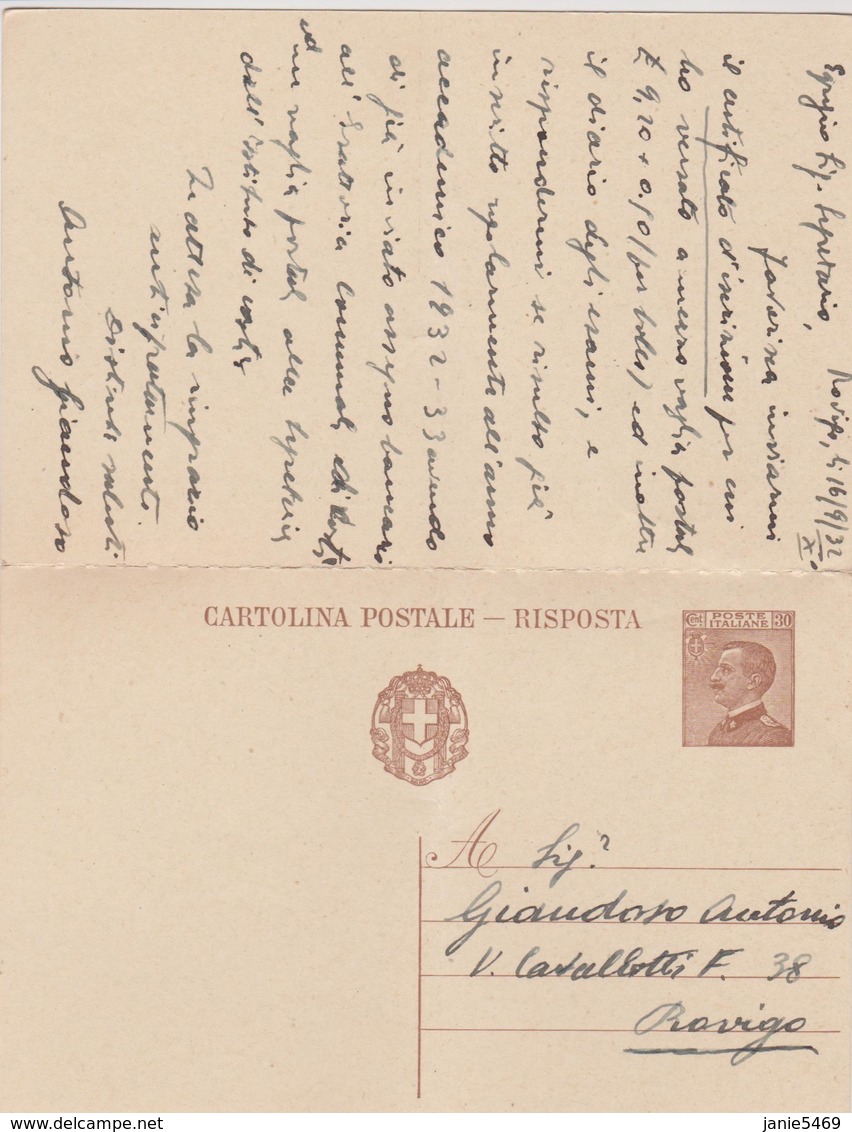 Rovigo, li 16/9/32
X°
Egregio Sig. Segretario,
favorisca inviarmi
il certificato d'iscrizione per cui
ho versato a mezzo vaglia postale
£ 9,20 + 0.50 (per bollo) ed inoltre
il diario degli esami, e
rispondermi se risulto già
inscritto regolarmente all'anno
accademico 1932-33 avendo
di già inviato assegno bancario
all'Esattoria comunale di costì
ed un vaglia postale alla segreteria
dell'istituto di costì
In attesa la ringrazio
anticipatamente.
Distinti saluti
Antonio Giandoso
CARTOLINA POSTALE — RISPOSTA
POSTE
Cent ITALIANE 30
A Sig.r
Giandoso Antonio
V. Cavallotti F. 38
Rovigo
janie5469